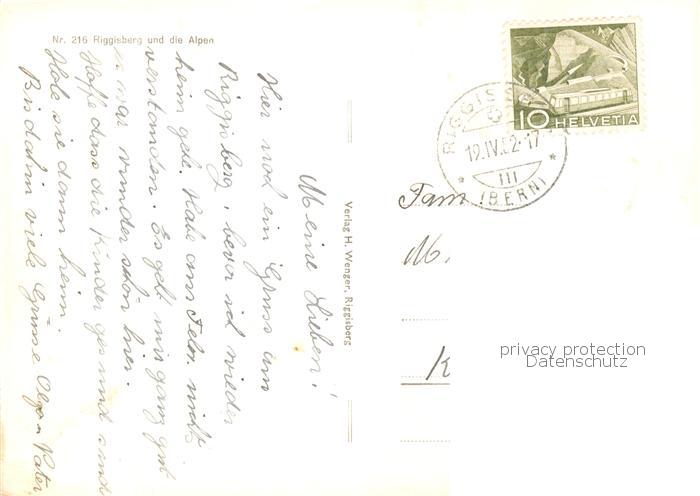 Nr. 216 Riggisberg und die Alpen
Meine Lieben!
Hier noch ein Gruss von
Riggisberg, bevor ich wieder
heim gehe. Habe am Telef. nichts
verstanden. Es geht mir ganz gut
u. war wunderschön hier.
Hoffe dass die Kinder gesund sind
Hole sie dann heim.
Bis dahin viele Grüsse Olga u Vater
Verlag H. Wenger, Riggisberg
10 HELVETIA
RIGGIS
12.IV.52-17
III
(BERN)
Fam
M.
K
privacy protection
Datenschutz